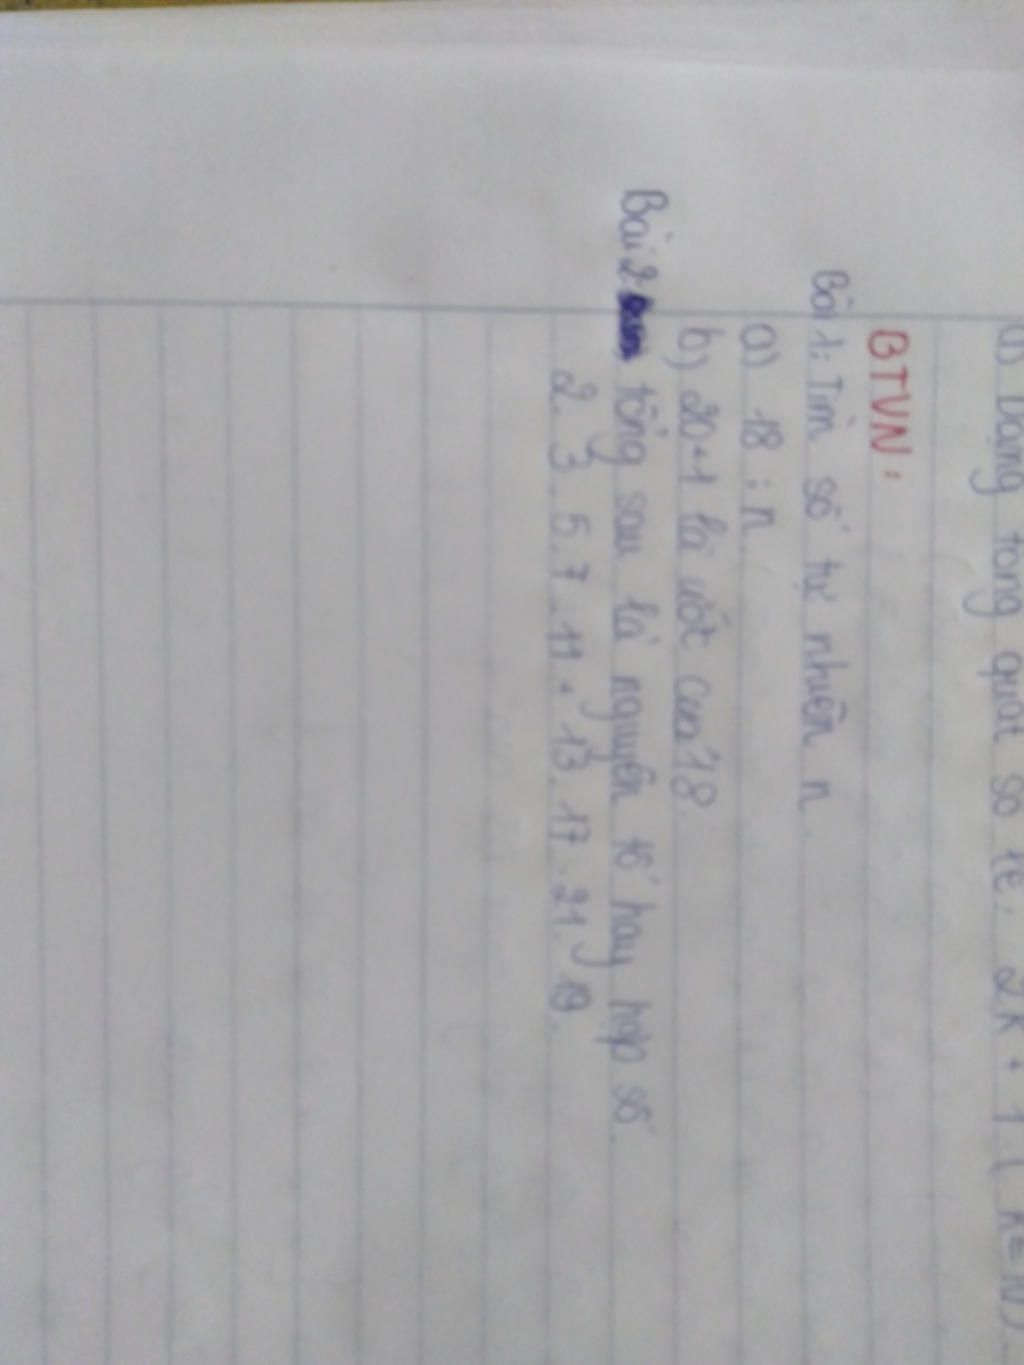 a) Dạng tổng quát số lẻ: 2k + 1 ( k ∈ N )
BTVN:
Bài 1: Tìm số tự nhiên n.
a) 18 : n.
b) 2n+1 là ước của 18.
Bài 2: tổng sau là nguyên tố hay hợp số.
2. 3. 5. 7. 11 + 13. 17. 21. 19.